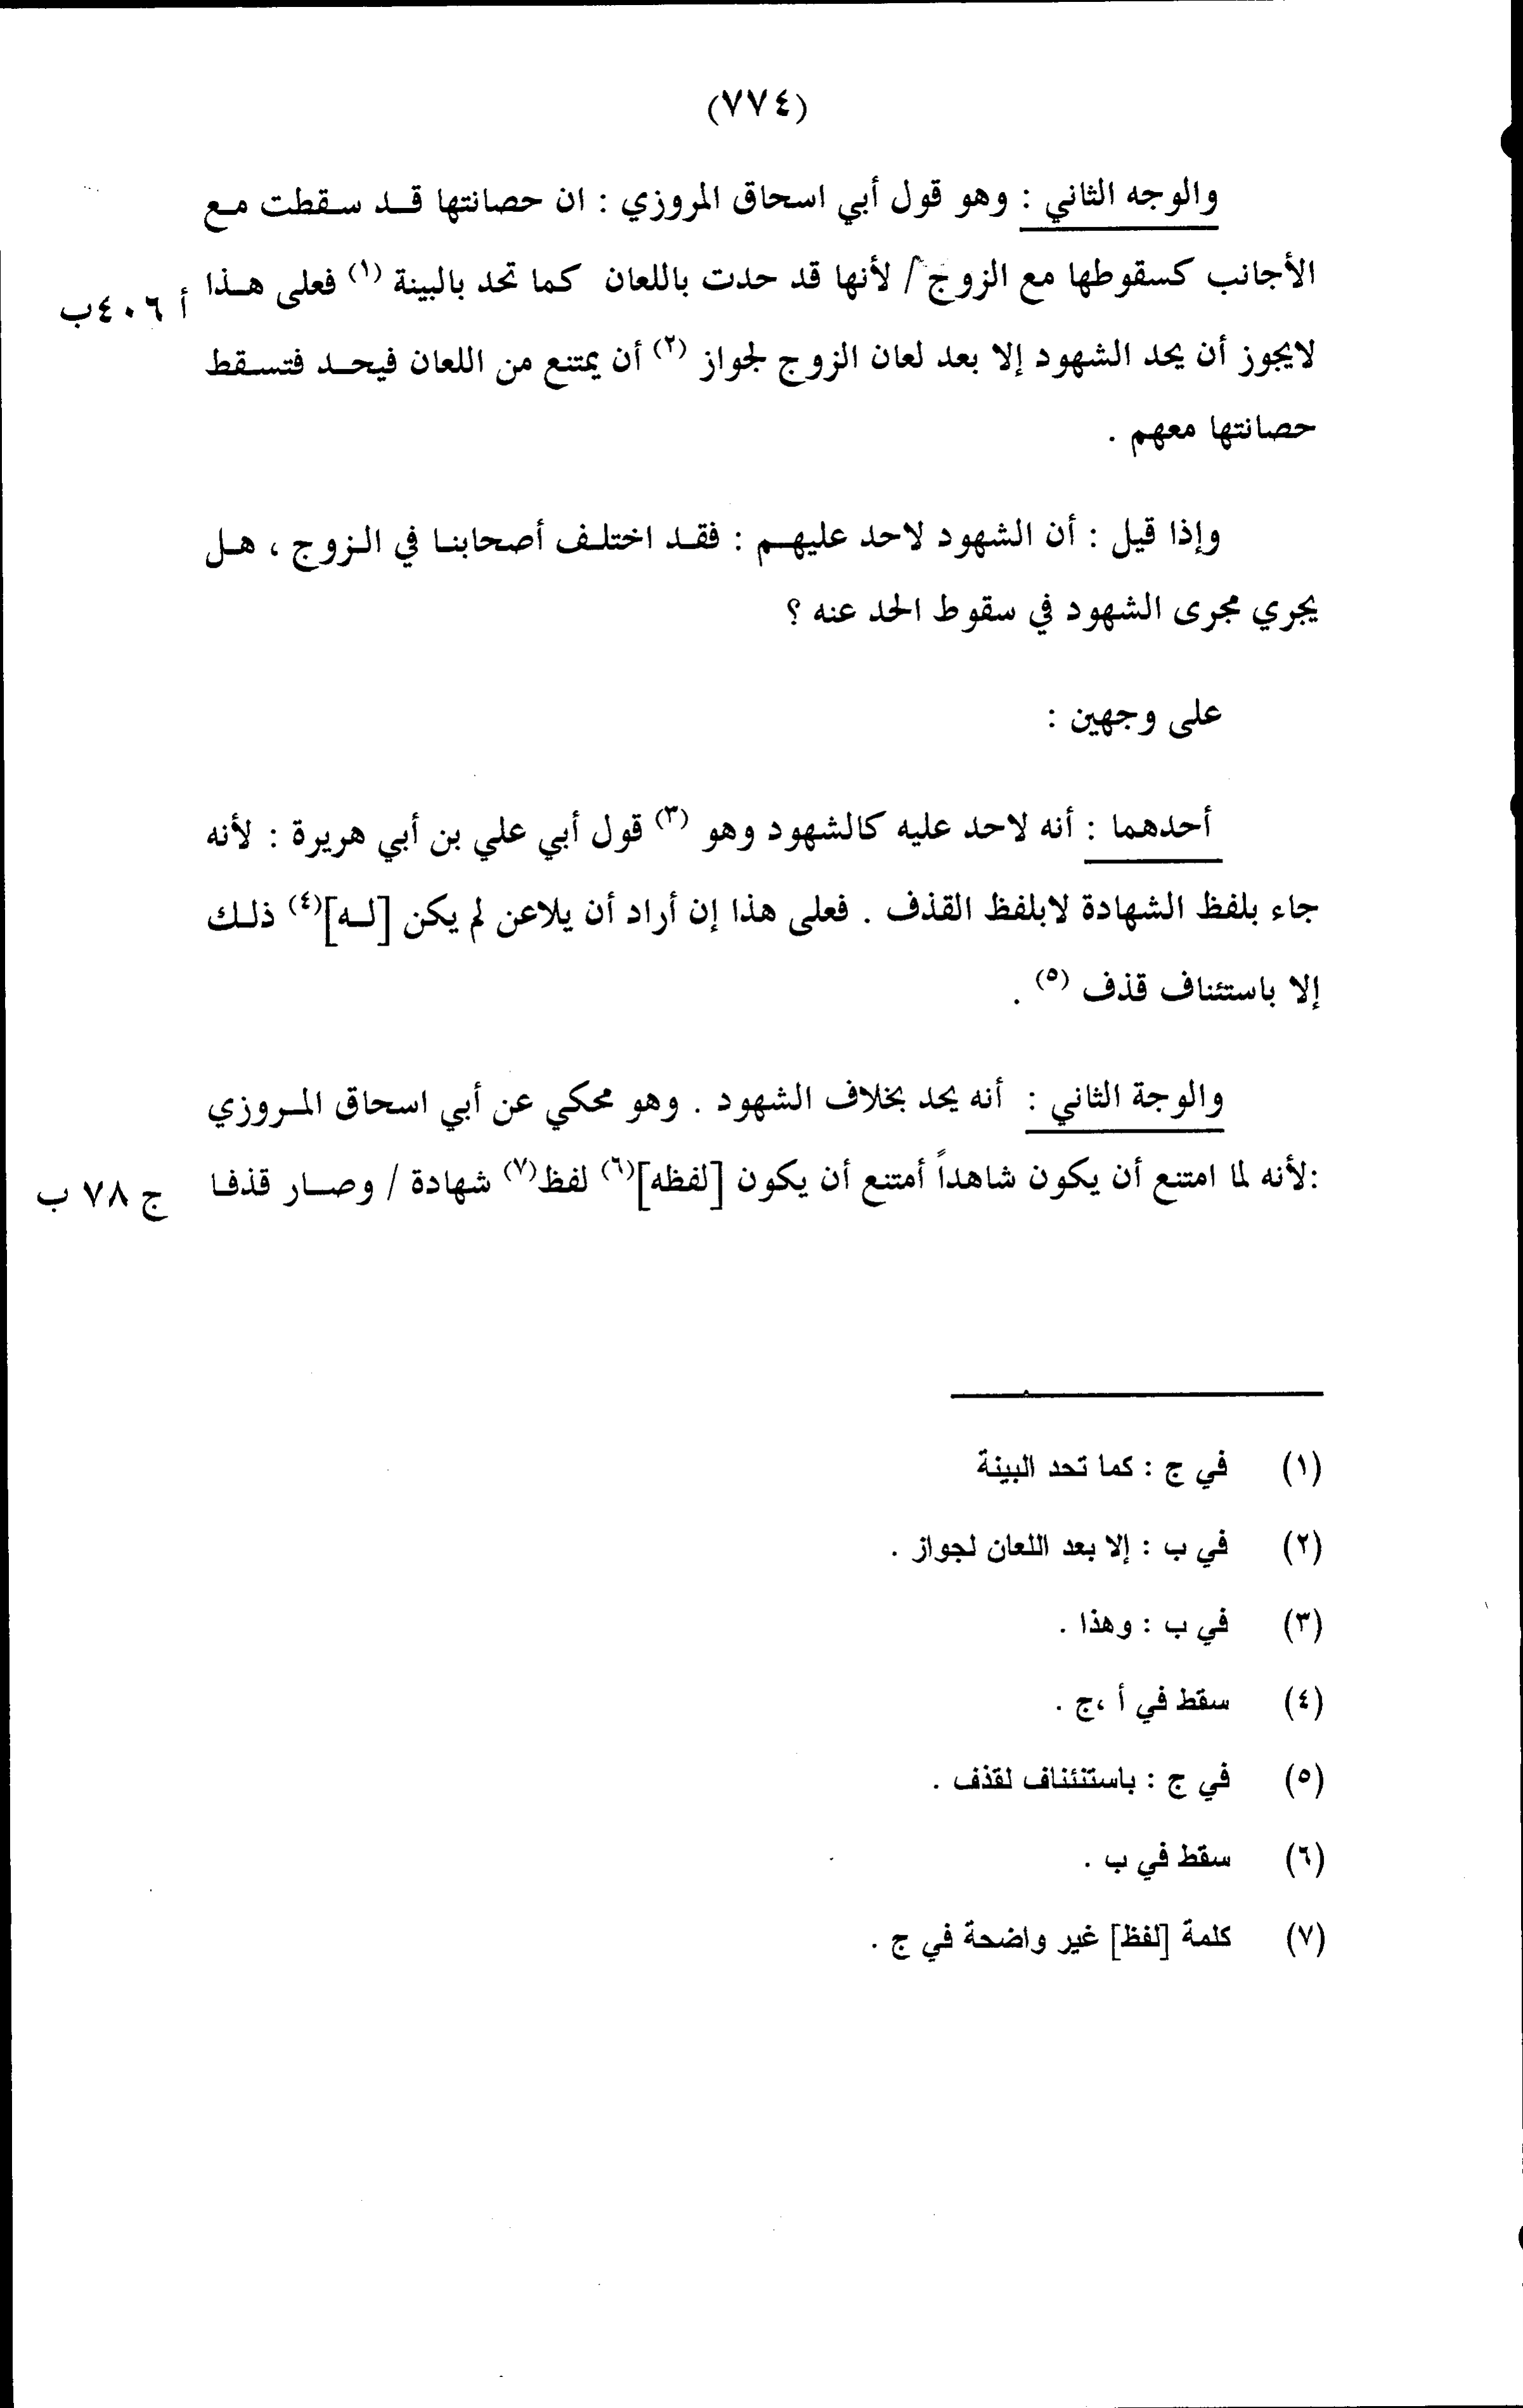 (٧٧٤)
والوجه الثاني : وهو قول أبي اسحاق المروزي : ان حصانتها قد سقطت مع
الأجانب كسقوطها مع الزوج / لأنها قد حدت باللعان كما تحد بالبينة (١) فعلى هذا
أ ٤٠٦ب
لايجوز أن يحد الشهود إلا بعد لعان الزوج لجواز (٢) أن يمتنع من اللعان فيحد فتسقط
حصانتها معهم .
وإذا قيل : أن الشهود لاحد عليهم : فقد اختلف أصحابنا في الزوج ، هل
يجري مجرى الشهود في سقوط الحد عنه ؟
على وجهين :
أحدهما : أنه لاحد عليه كالشهود وهو (٣) قول أبي علي بن أبي هريرة : لأنه
جاء بلفظ الشهادة لابلفظ القذف . فعلى هذا إن أراد أن يلاعن لم يكن [له](٤) ذلك
إلا باستئناف قذف (٥) .
والوجة الثاني : أنه يحد بخلاف الشهود . وهو محكي عن أبي اسحاق المروزي
:لأنه لما امتنع أن يكون شاهداً أمتنع أن يكون [لفظه](٦) لفظ(٧) شهادة / وصار قذفا
ج ٧٨ ب
(١) في ج : كما تحد البينة
(٢) في ب : إلا بعد اللعان لجواز .
(٣) في ب : وهذا .
(٤) سقط في أ ،ج .
(٥) في ج : باستنئناف لقذف .
(٦) سقط في ب .
(٧) كلمة [لفظ] غير واضحة في ج .